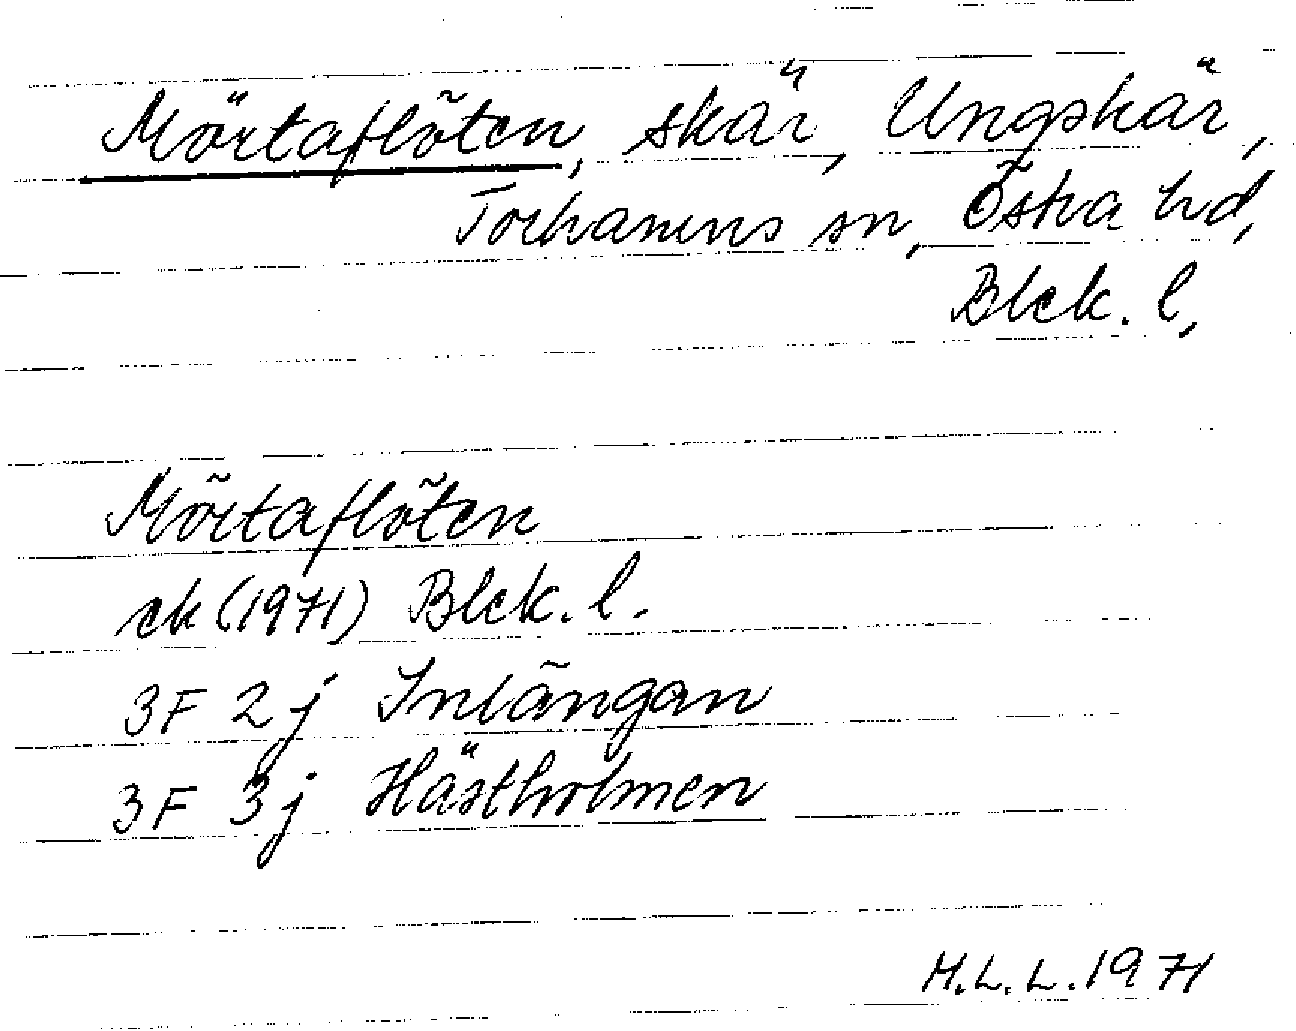 Mörtaflöten, skär, Ungskär,
Torhamns sn, Östra hd,
Blek. l,
Mörtaflöten
ek (1971) Blek. l.
3F 2j Inlängan
3F 3j Hästholmen
H.L.L. 1971